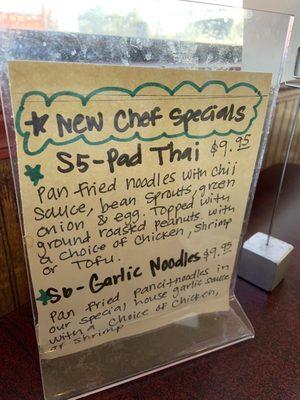 * New Chef Specials
* S5-Pad Thai $9.95
Pan fried noodles with chji
sauce, bean sprouts, green
onion & egg. Topped with
ground roasted peanuts with
a choice of Chicken, Shrimp
or Tofu.
* S6- Garlic Noodles $9.95
Pan fried pancit noodles in
our special house garlic sauce
with a choice of Chicken,
or shrimp